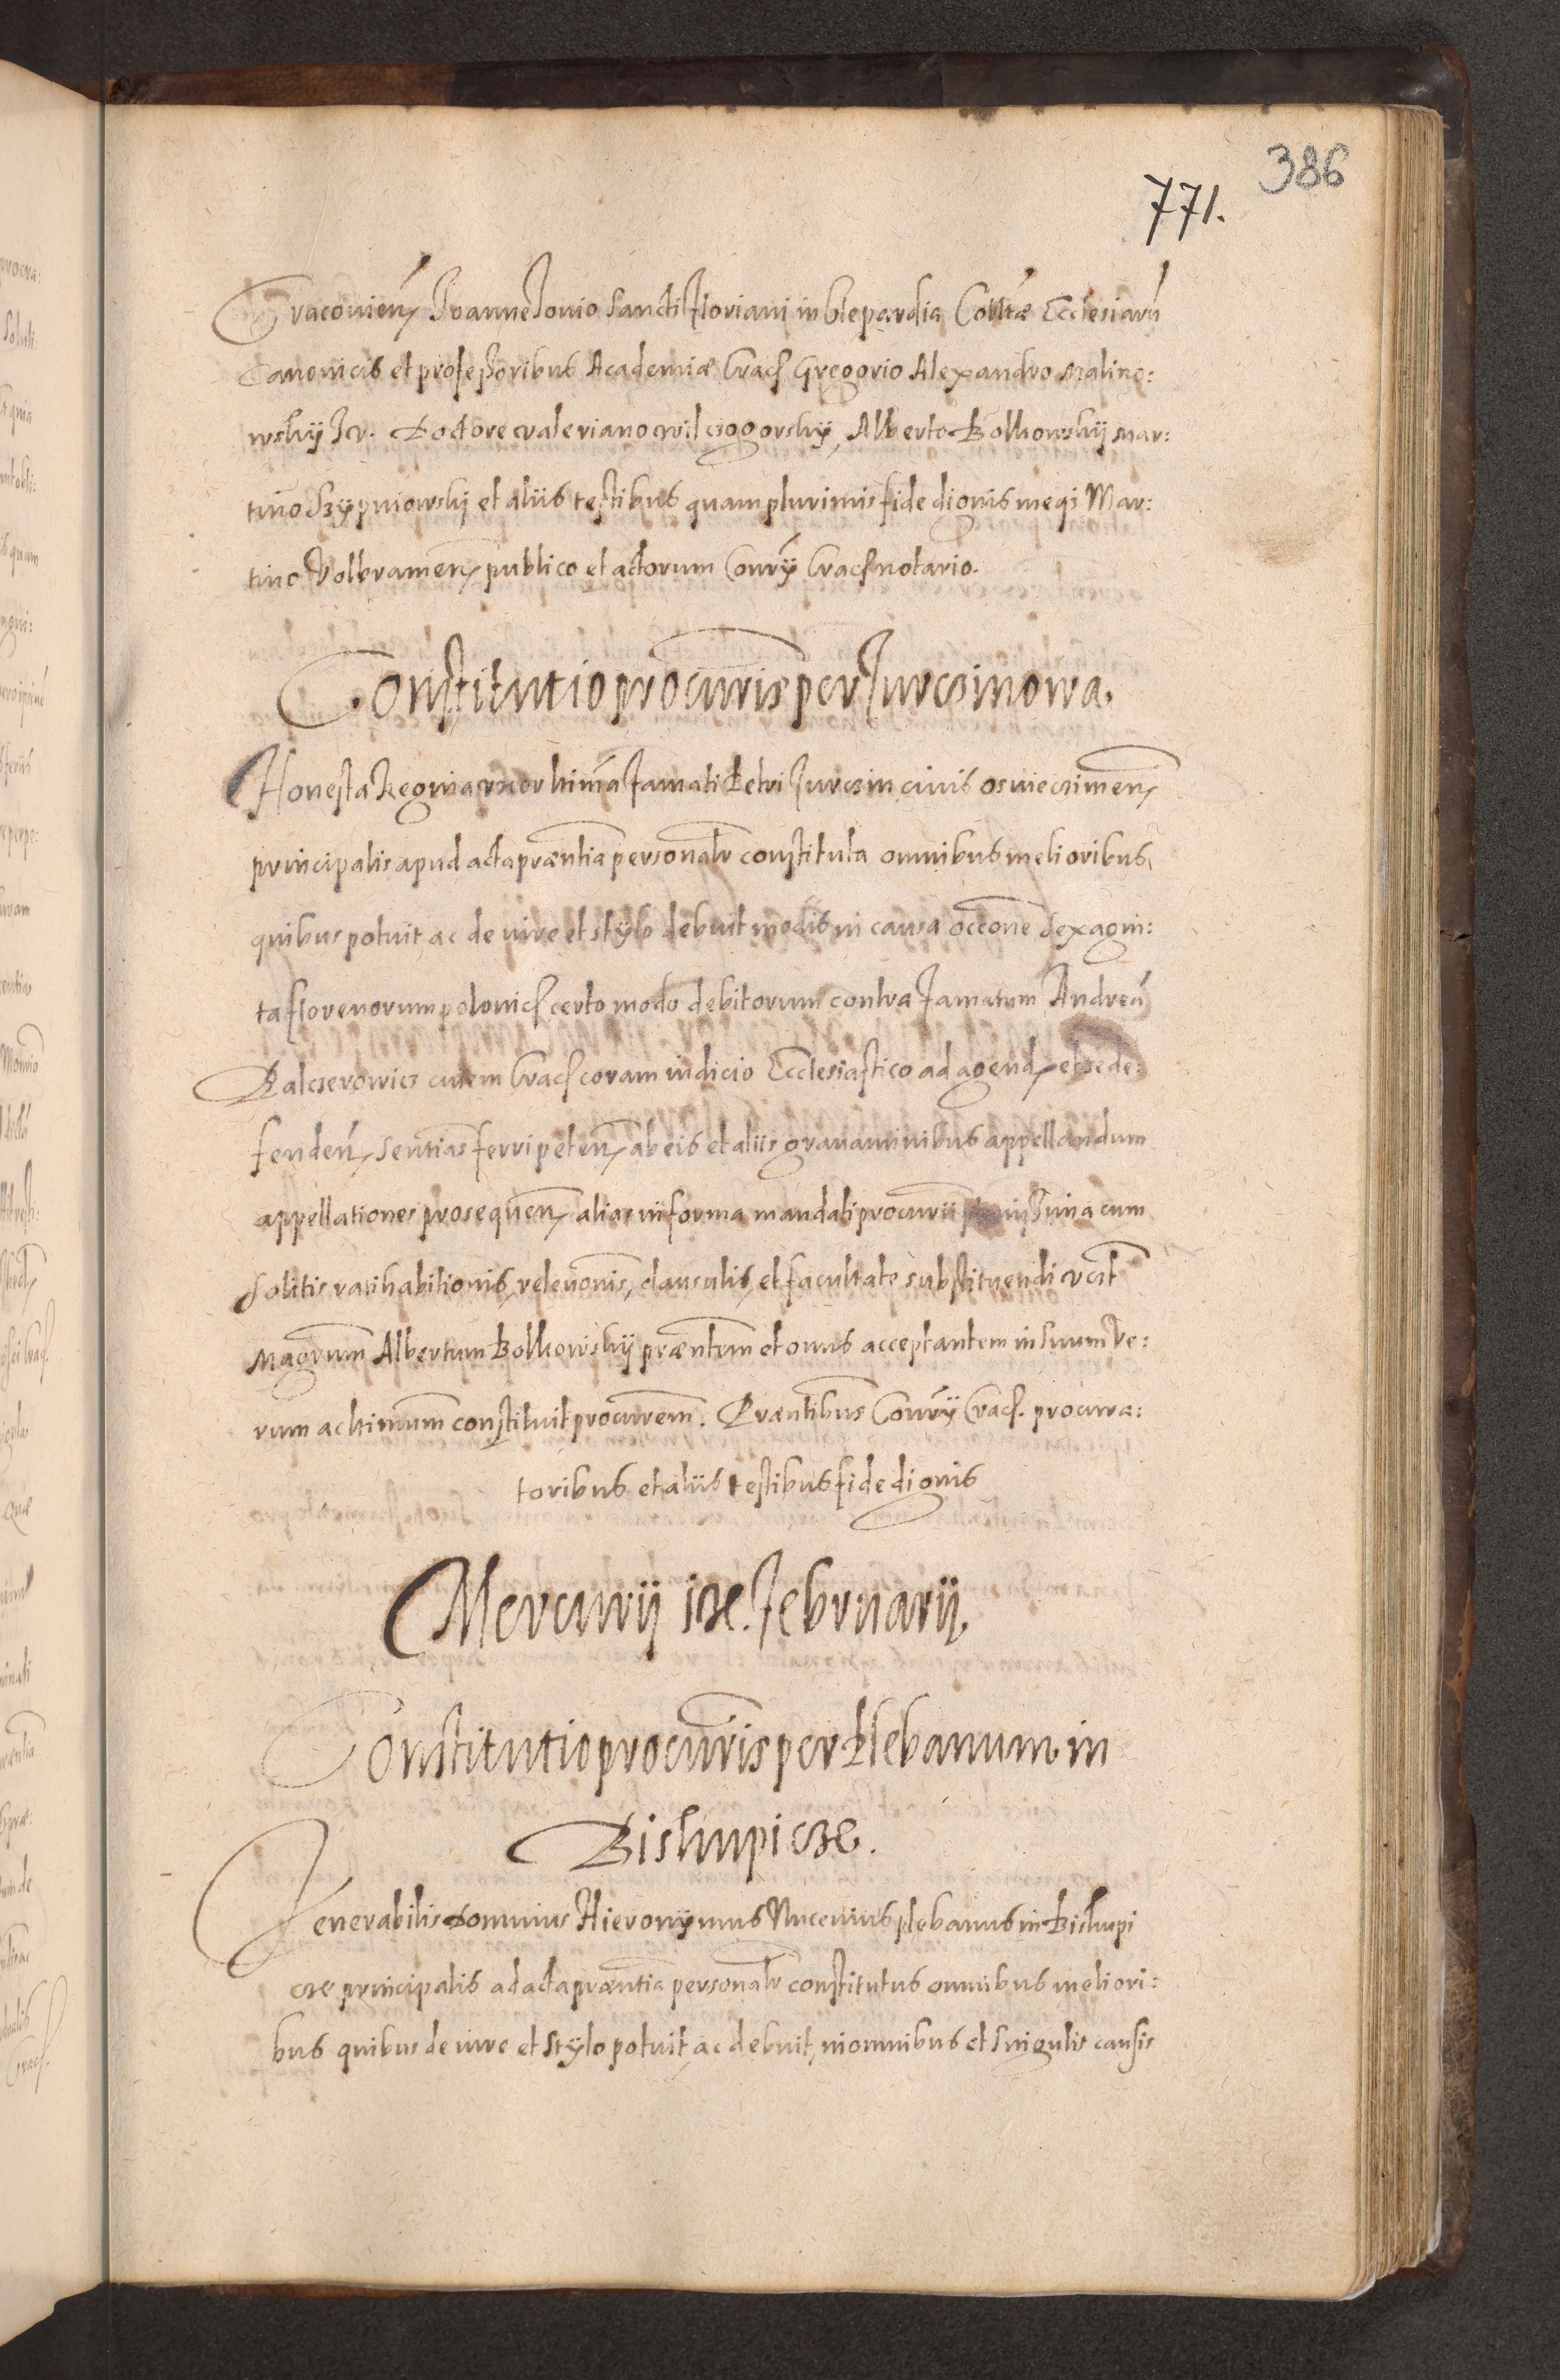 386
771.
Cracovien̄ Joanne Jonio Sancti Floriani in Clepardia Collt̄æ Ecclesiarū
Canonicis et professoribus Academiæ Cracf Gregorio Alexandro Malino:
wskij Doctore Valeriano Wilczogorskÿ, Alberto Bolkowskij Mar:
tino Szÿpniowskij et aliis testibus quamplurimis fide dignis meqȝ Mar:
tino Wolbramen̄ publico et actorum Conrÿ Cracf notario.
Constitutio procuris̄ per Jurczinowa.
Honesta Regina uxor ltim̄a famati Petri Jurczin civis osviecimen̄
principalis apud acta præntia personalr̄ constituta omnibus melioribus,
quibus potuit, ac de iure et stÿlo debuit modis in causa occōne sexagin:
ta florenorum polonicf certo modo debitorum contra famatum Andreā
Balczerowicz civem Cracf coram iudicio Ecclesiastico ad agend et se de:
fenden̄ sentīas ferri peten̄ ab eis et aliis gravaminibus appellandum
appellationes prosequen̄ alias in forma mandati procurii plenissima cum
solitis ratihabitionis, relevōnis, clausulis, et facultate substituendi
Magrum̄ Albertum Bolkowskij præntem̄ et onus acceptantem in suum ve:
rum ac ltimum̄ constituit procurem̄. Præntibus̄ Conrÿ Cracf. procura:
toribus et aliis testibus fide dignis
Mercurij Februarij.
Constitutio procuris̄ per Plebanum in
Biskupicze.
Venerabilis Dominus Hieronÿmus Nucenius plebanus in Biskupi
cze principalis ad acta præntia personalr̄ constitutus omnibus meliori:
bus quibus de iure et stÿlo potuit, ac debuit, in omnibus et singulis causis